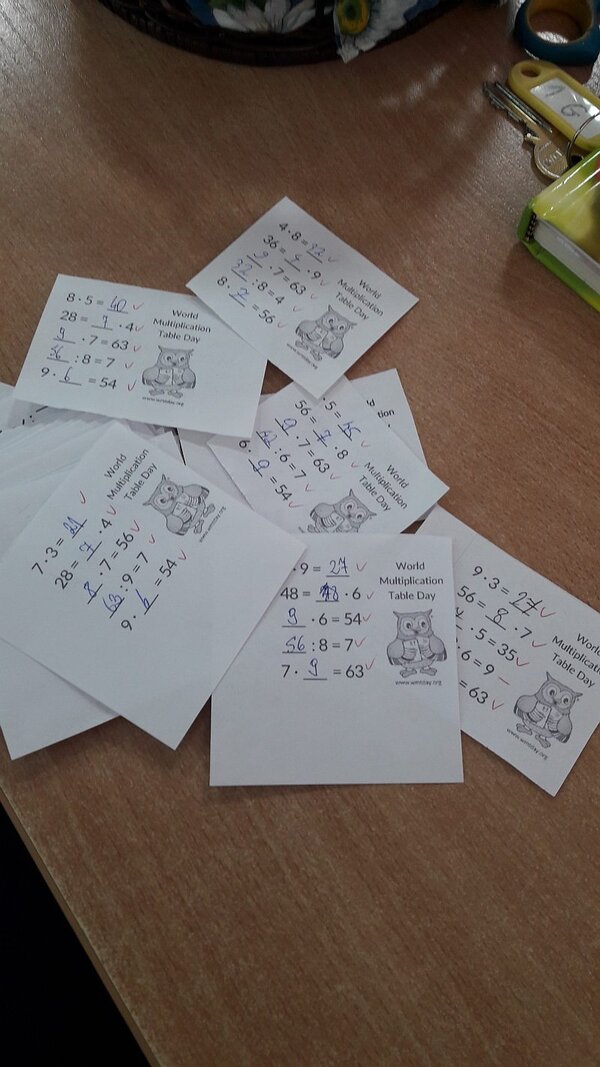 4 · 8 = 32
36 = 4 · 9
9 · 7 = 63
32 : 8 = 4
8 · 7 = 56
World
Multiplication
Table Day
www.wmtday.org
8 · 5 = 40
28 = 7 · 4
9 · 7 = 63
56 : 8 = 7
9 · 6 = 54
World
Multiplication
Table Day
www.wmtday.org
· 5 = 45
56 = 7 · 8
9 · 7 = 63
42 : 6 = 7
6 · 9 = 54
World
Multiplication
Table Day
tion
7 · 3 = 21
28 = 7 · 4
8 · 7 = 56
63 : 9 = 7
9 · 6 = 54
World
Multiplication
Table Day
· 9 = 27
48 = 8 · 6
9 · 6 = 54
56 : 8 = 7
7 · 9 = 63
World
Multiplication
Table Day
www.wmtday.org
9 · 3 = 27
56 = 8 · 7
· 5 = 35
· 6 = 9
= 63
World
Multiplication
Table Day
www.wmtday.org
1G